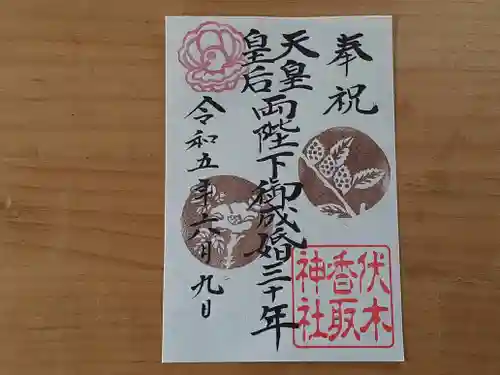 奉祝
天皇
皇后
両陛下御成婚三十年
令和五年六月九日
伏木
香取
神社